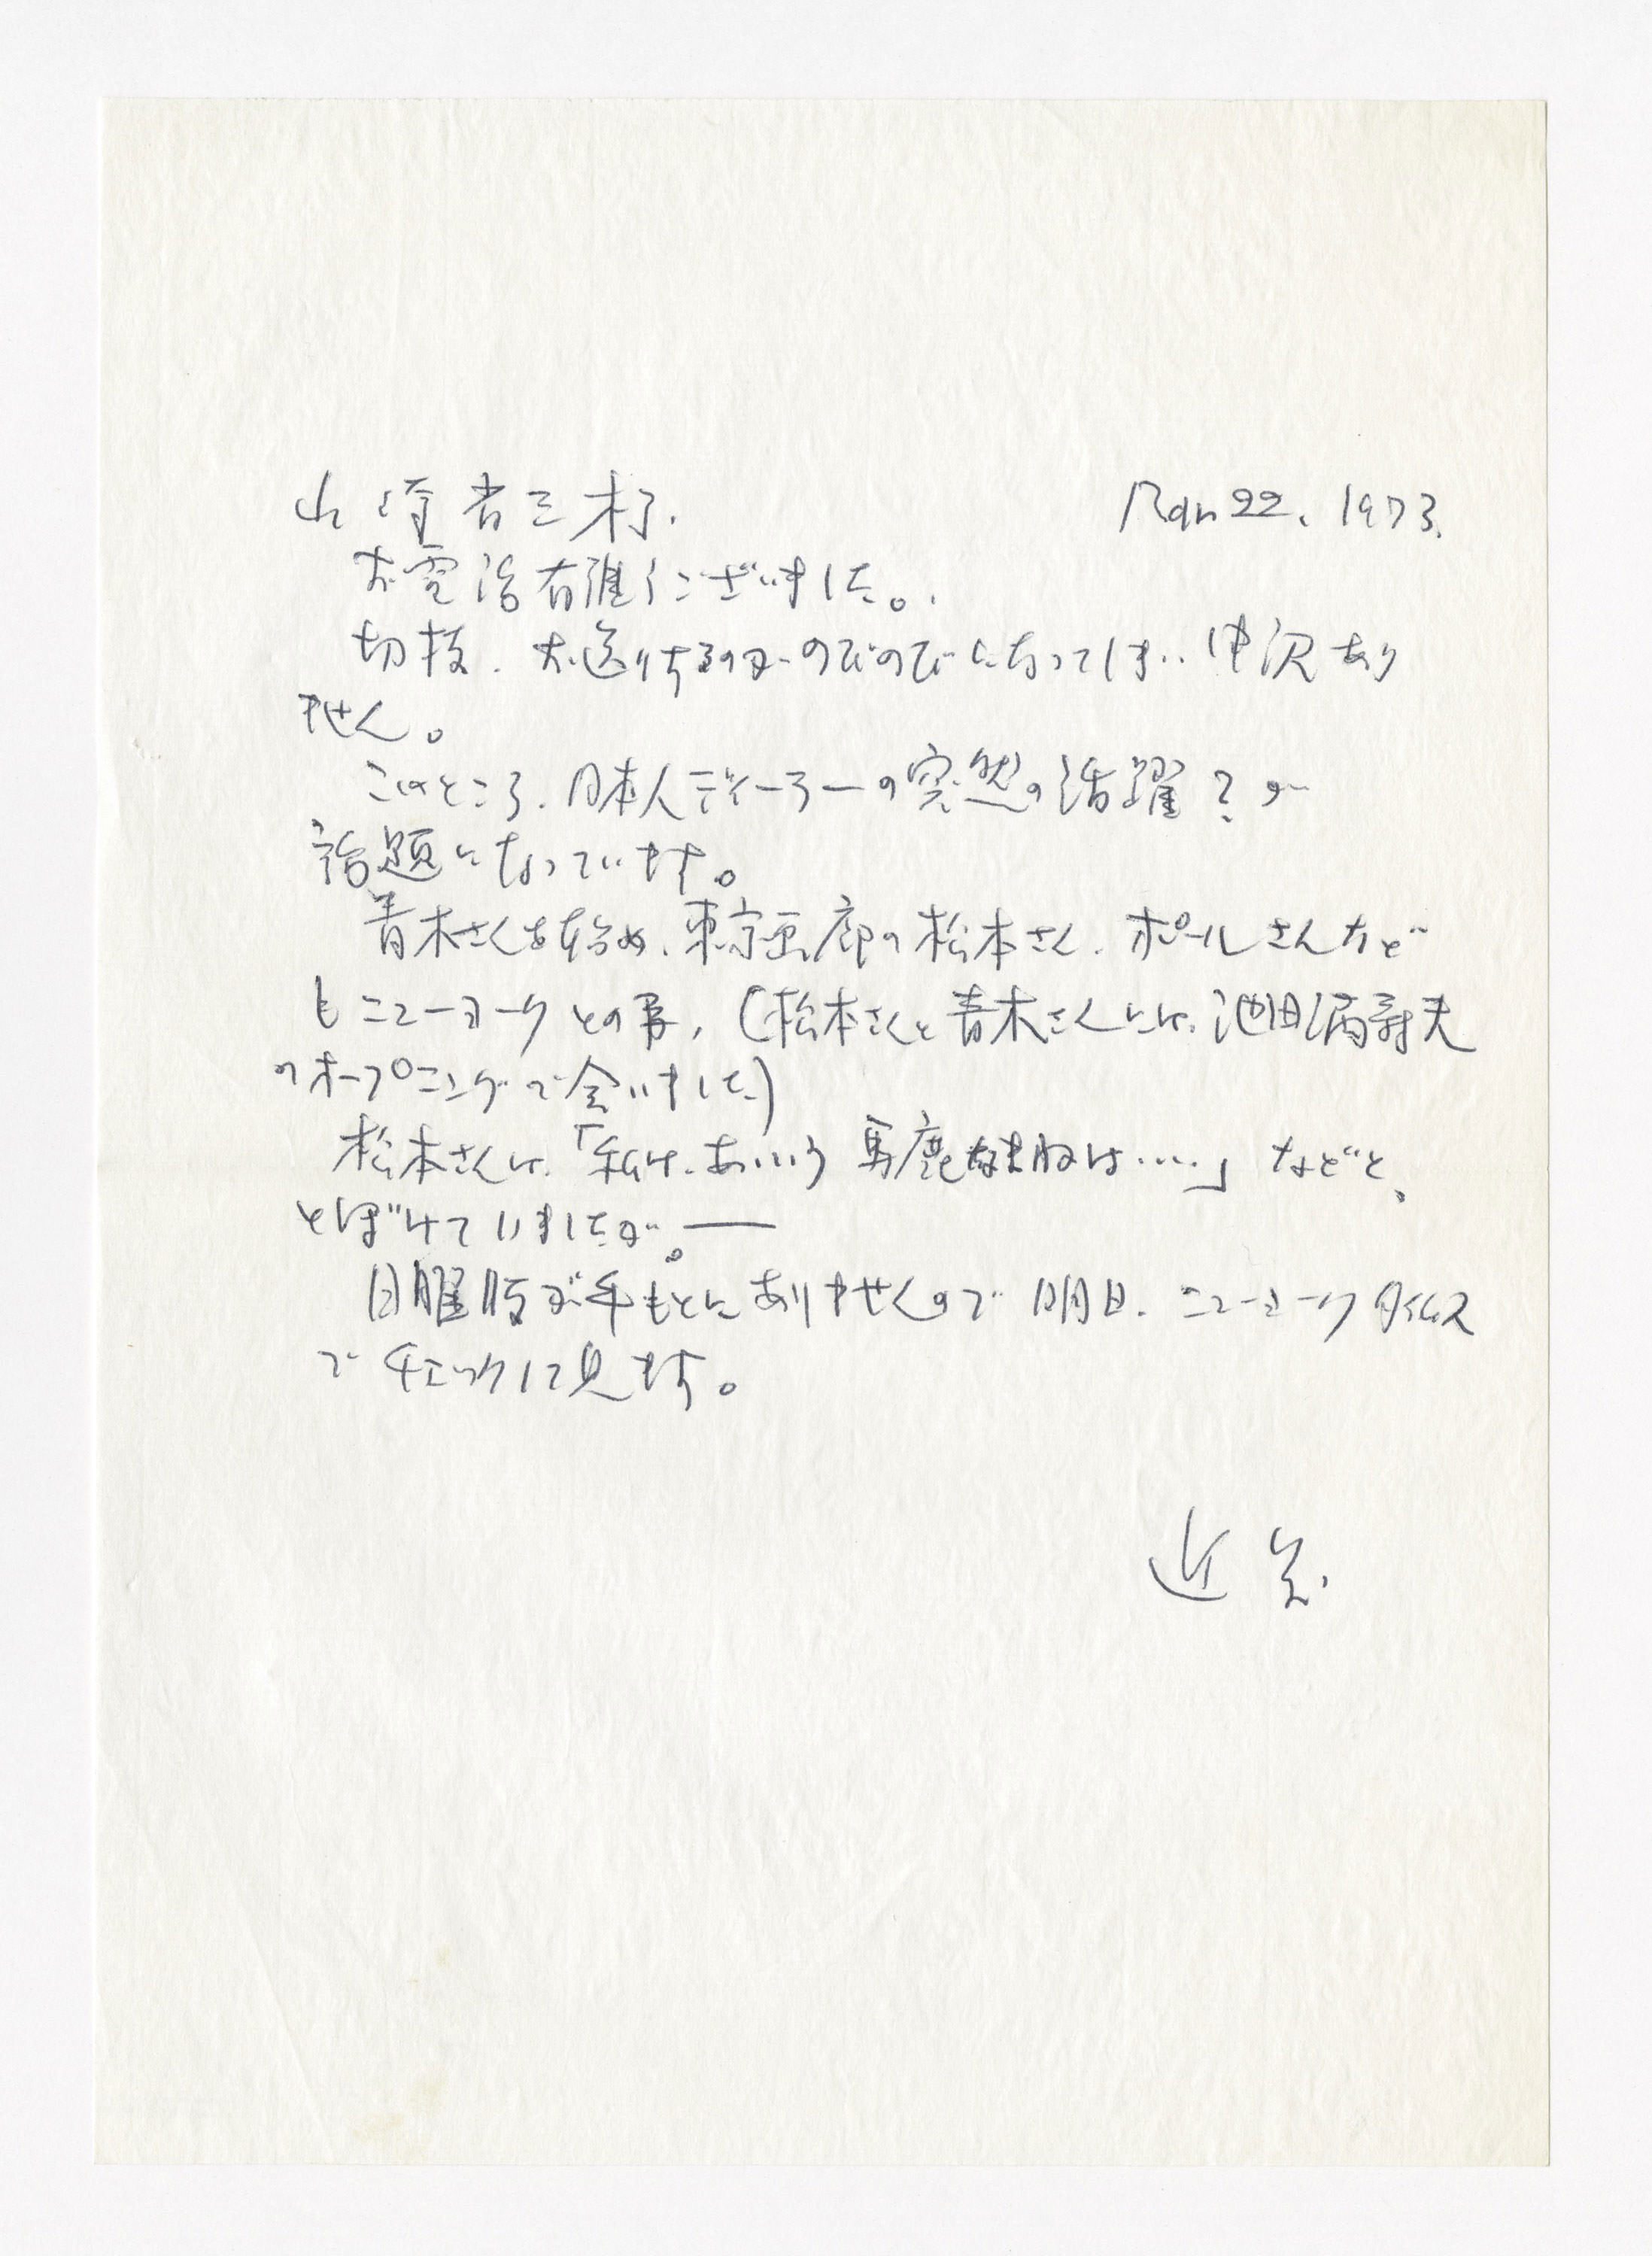 山崎省三様. Mar 22, 1973.
お電話有難うございました。
切抜、お送りするのがのびのびになってしまい申訳あり
ません。
このところ、日本人ディーラーの突然の活躍?が
話題になっています。
青木さんを始め、東京画廊の松本さん、ポールさんなど
もニューヨークとの事、(松本さんと青木さんには、池田満寿夫
のオープニングで会いました)
松本さんは、「私は、あゝいう馬鹿な真似は‥‥」などと、
とぼけていましたが。——
日曜版が手もとにありませんので明日、ニューヨークタイムス
でチェックして見ます。
近